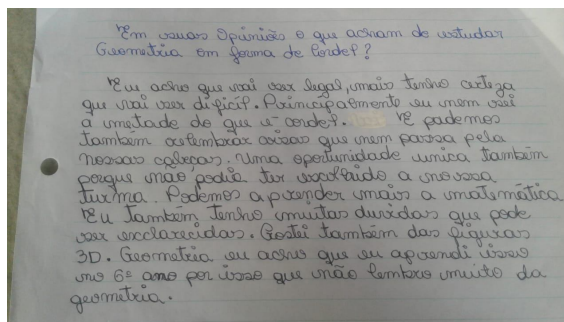 Em suas opiniões o que acham de estudar
Geometria em forma de Cordel?
Eu acho que vai ser legal, mais tenho certeza
que vai ser dificil. Principalmente eu nem sei
a metade do que é cordel. E podemos
também relembrar coisas que nem passa pela
nossas cabeças. Uma oportunidade unica também
porque não podia ter escolhido a nossa
turma. Podemos aprender mais a matemática
Eu também tenho muitas duvidas que pode
ser esclarecidas. Gostei também das figuras
3D. Geometria eu acho que eu aprendi isso
no 6º ano por isso que não lembro muito da
geometria.